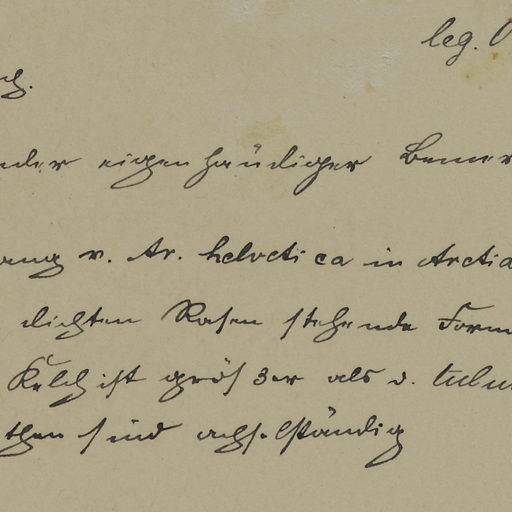 leg.
ch.
nder eigenhändiger Bemer
ang v. Ar. helvetica in Aretia
dichten Rasen stehende Form
Kelch ist größer als v. tubu
then sind achselständig